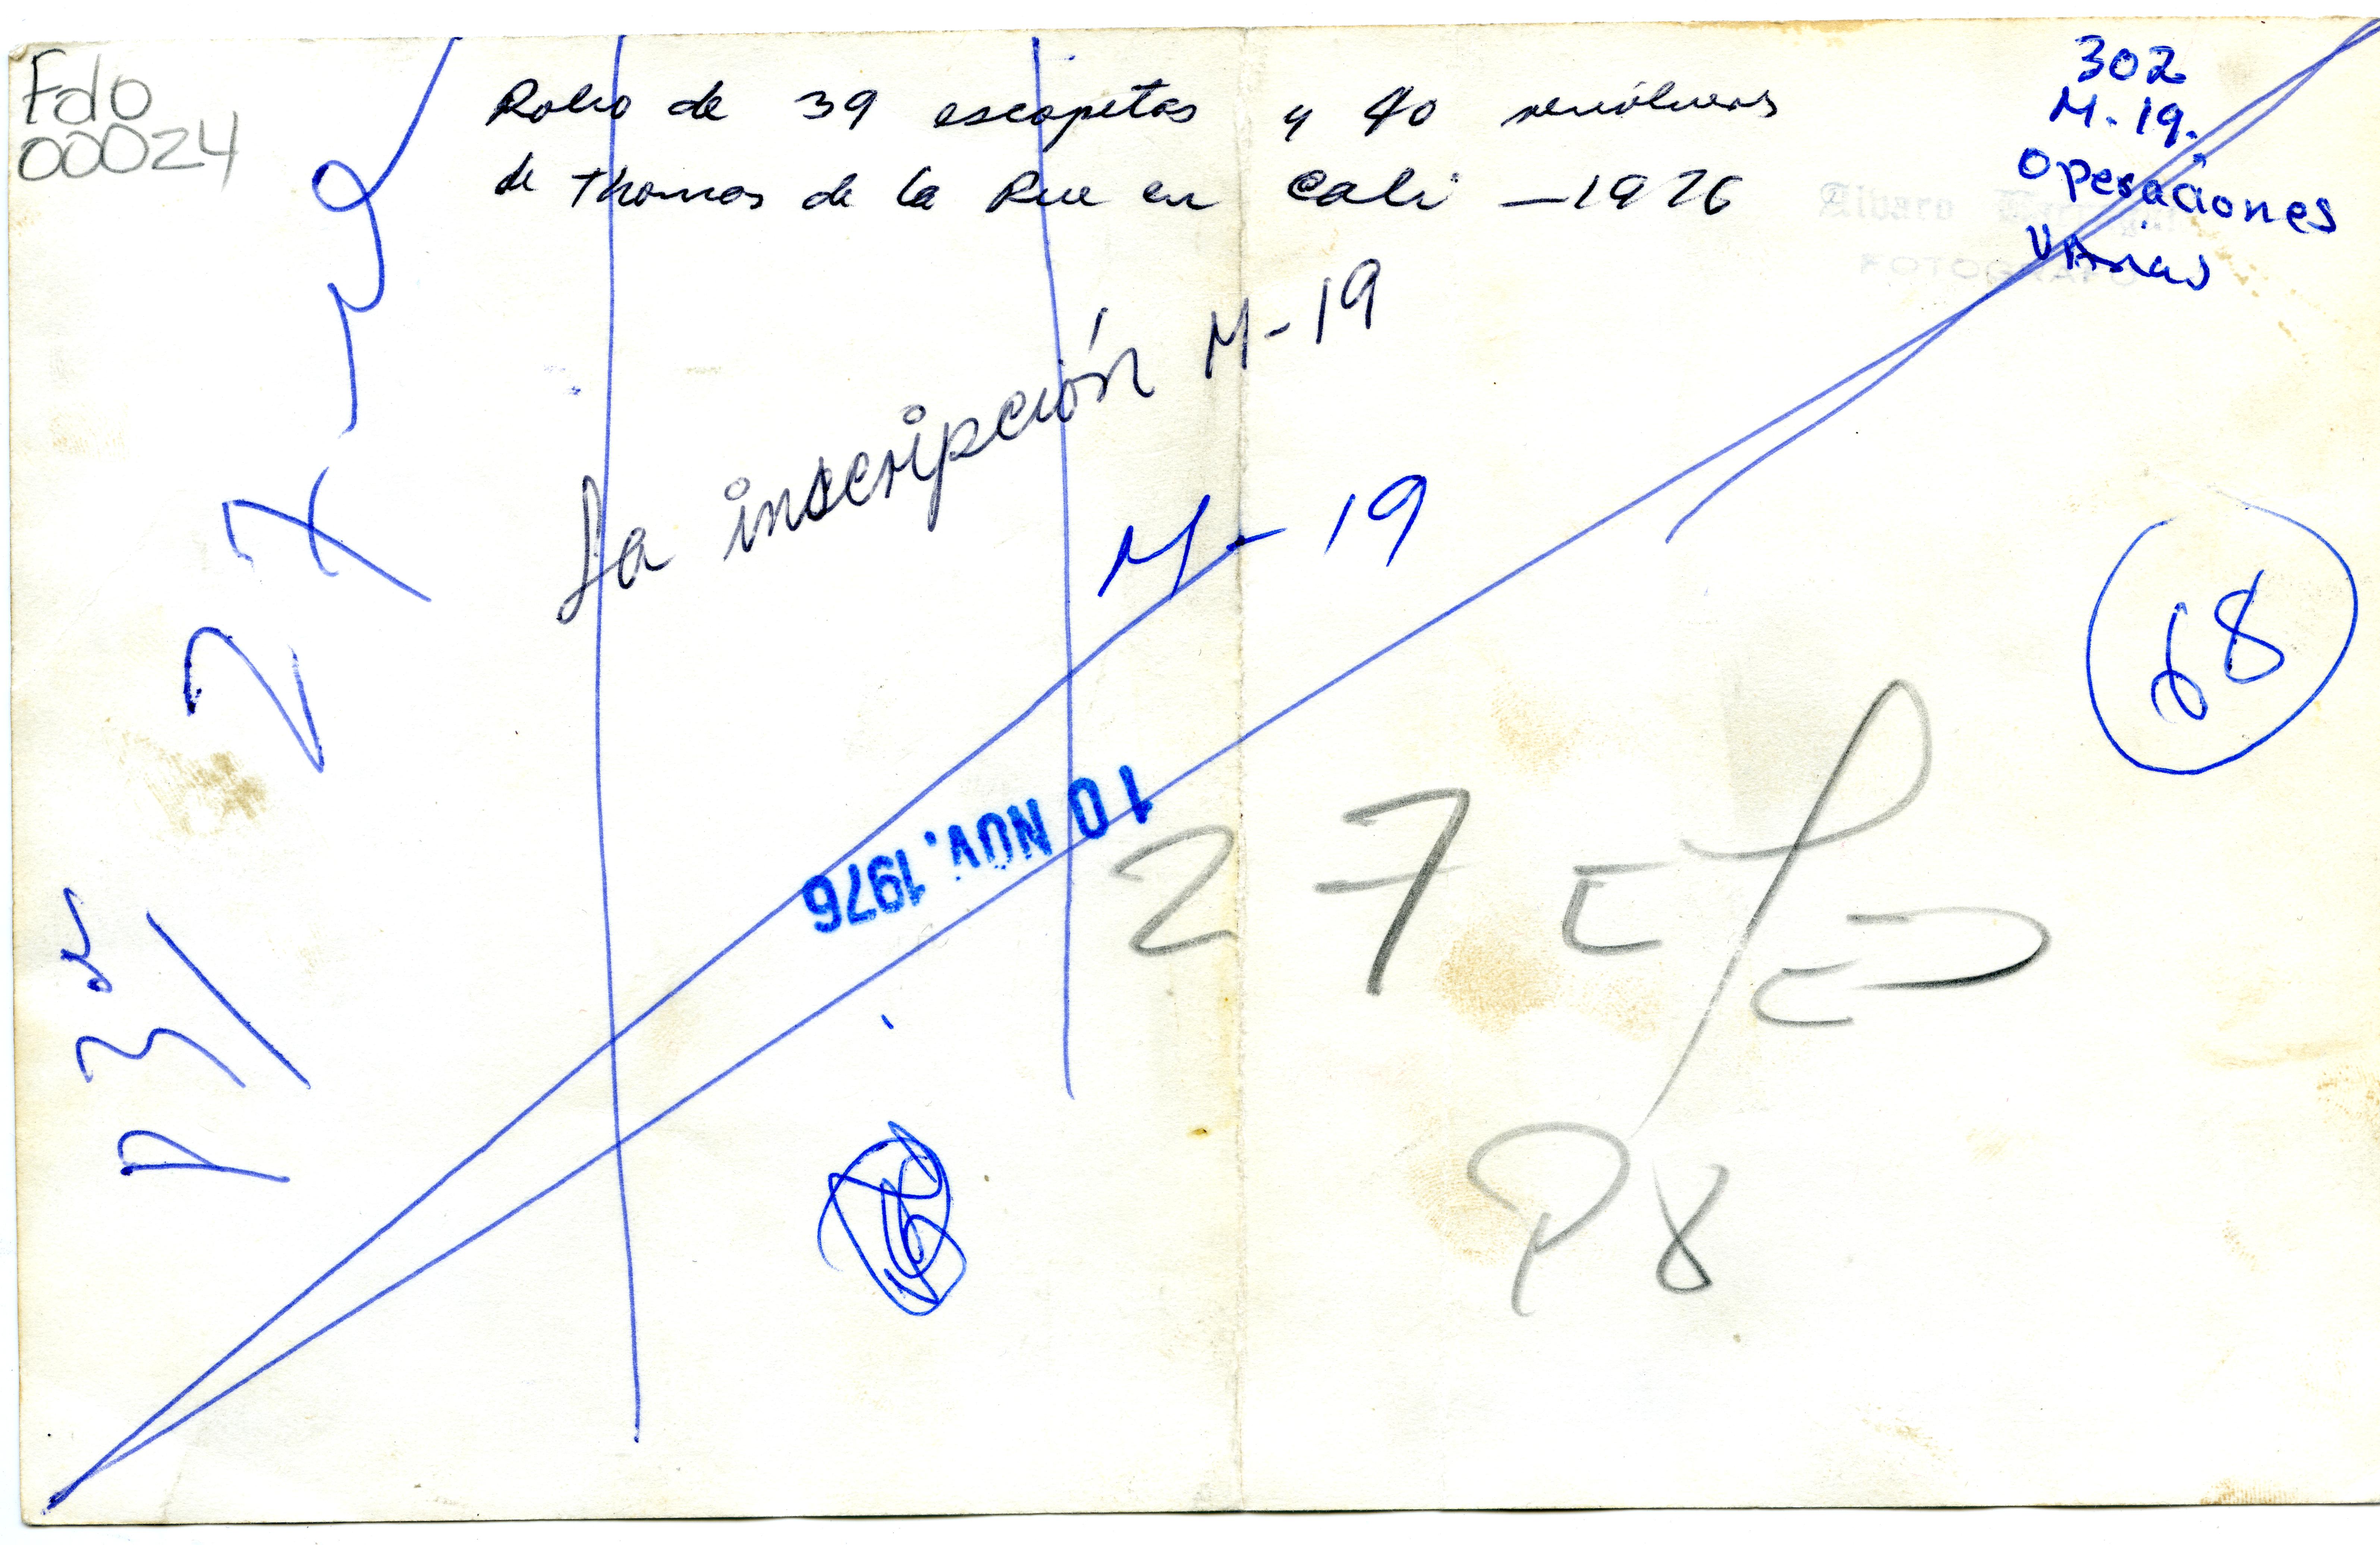 Fdo
00024
Robo de 39 escopetas y 40 revólveres
de Thomas de la Rue en Cali - 1976
302
M-19.
Operaciones
VARIAS
Alvaro
FOTOGRAFO
La inscripción M-19
M-19
68
10 NOV. 1976
27
P8